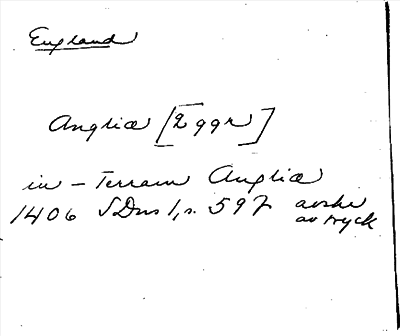 England
Angliæ [2 ggr]
in - Terram Angliæ
1406 SDns 1, s. 597
av tryck